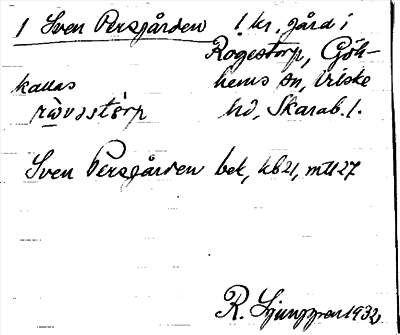 1 Sven Persgården 1 kr. gård i
Rogestorp, Gök-
kallas hems sn, Vilske
ràvastòrp hd, Skarab. l.
Sven Persgården bek, kb21, mtl27
R. Ljunggren 1932